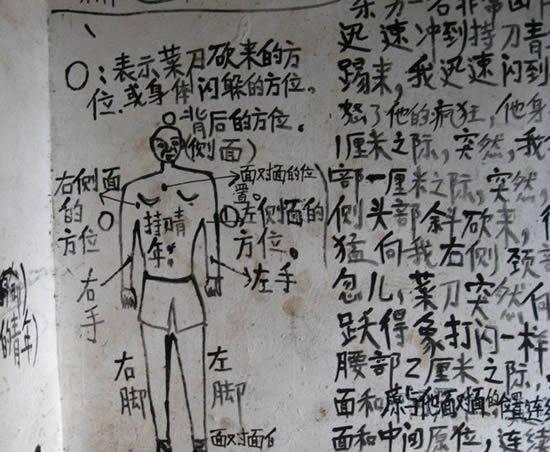 〇：表示菜刀砍来的方
位、或身体闪躲的方位。
背后的方位。
(侧面)
右侧面
的
方位〇
面对面的位
置。
左侧面的
方位。
年
右
手
左手
右
脚
左
脚
面对面
的青年)
迅速冲到持刀青
踢来，我迅速闪到
怒了他的疯狂，他身
1厘米之际，突然，我
部一厘米之际，突然，
侧头部斜砍来，
猛向我右侧颈部
忽儿，菜刀突然
跃得象打闪一样
腰部2厘米之际，
面和 面对面的位置连
面和中间原位，连续